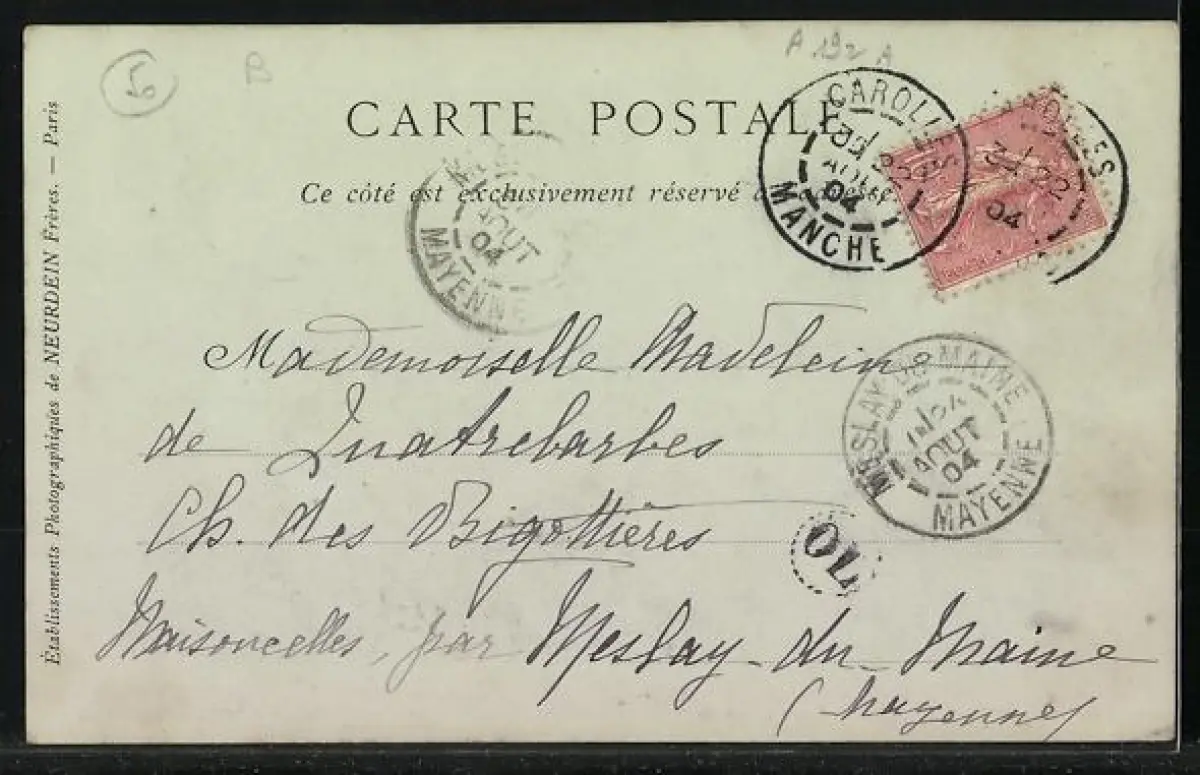 5
B
A 192 A
CARTE POSTALE
Ce côté est exclusivement réservé à l'adresse
CAROLLES
3E 22
AOUT
04
MANCHE
3E 22
04
AOUT
04
MAYENNE
Mademoiselle Madeleine
de Quatrebarbes
Ch. des Bigottières
Maisoncelles, par Meslay-du-Maine
(Mayenne)
MESLAY-DU-MAINE
AOUT
04
MAYENNE
OL
Établissements Photographiques de NEURDEIN Frères. — Paris